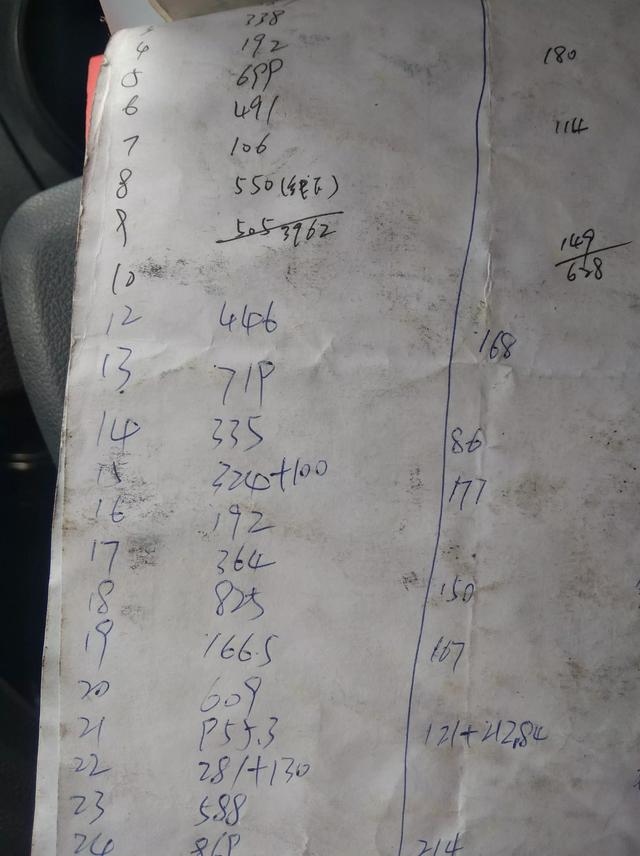 338
4 192 180
5 699
6 491 114
7 106
8 550
9 505 3962 149
638
10
12 446 168
13 719
14 335 86
15 324+100 177
16 192
17 364
18 825 150
19 166.5 167
20 609
21 955.3 121+212.84
22 281+130
23 588
24 869 214